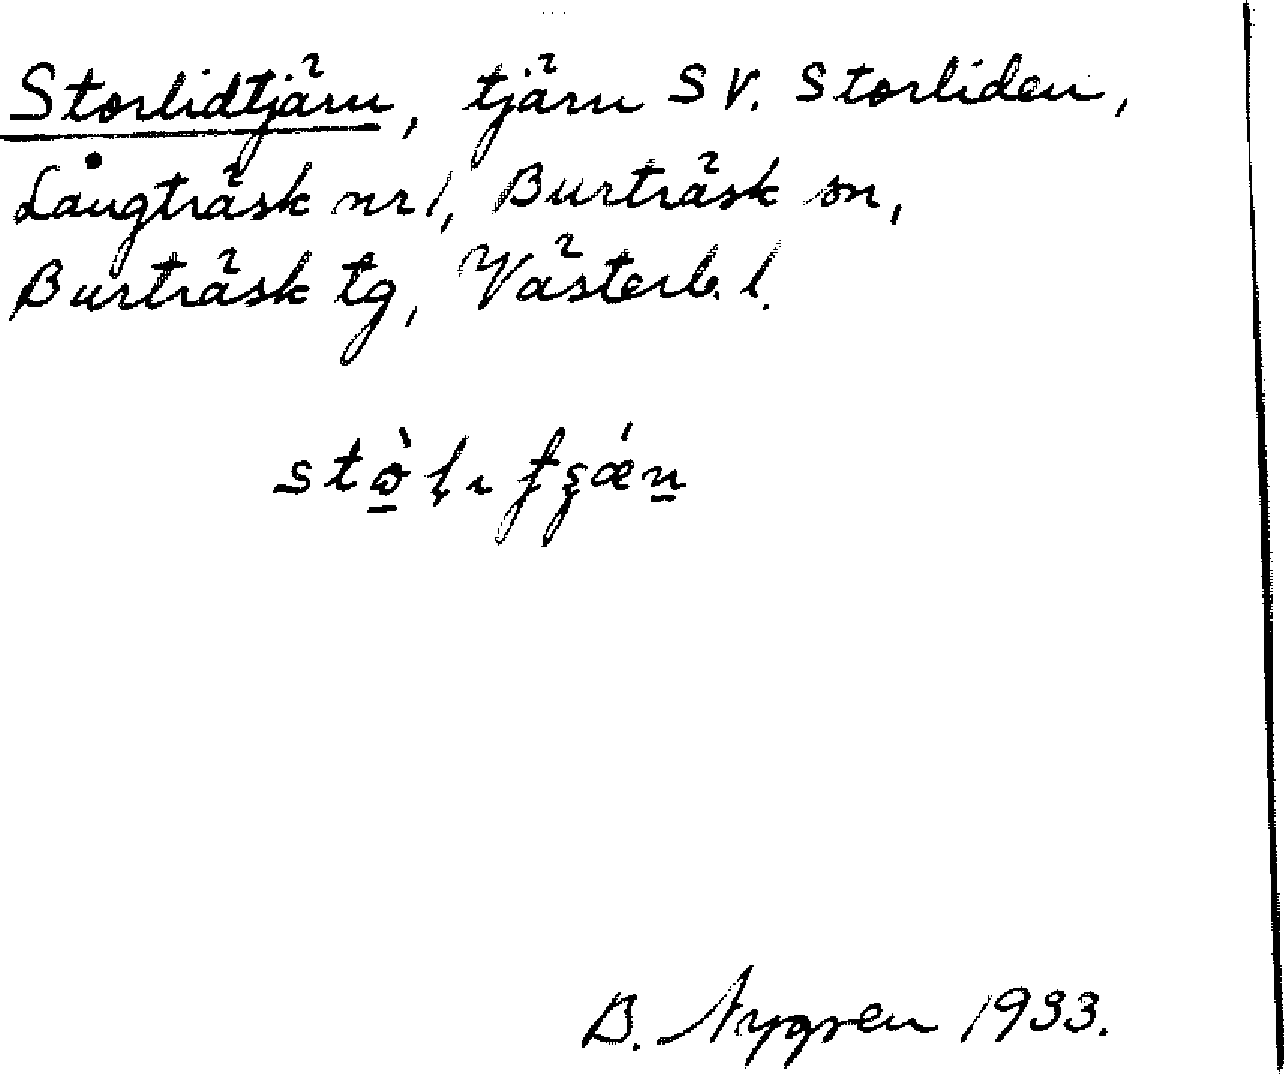 Storlidtjärn, tjärn SV. Storliden,
Långträsk nr 1, Burträsk sn,
Burträsk tg, Västerb. l.
B. Nygren 1933.